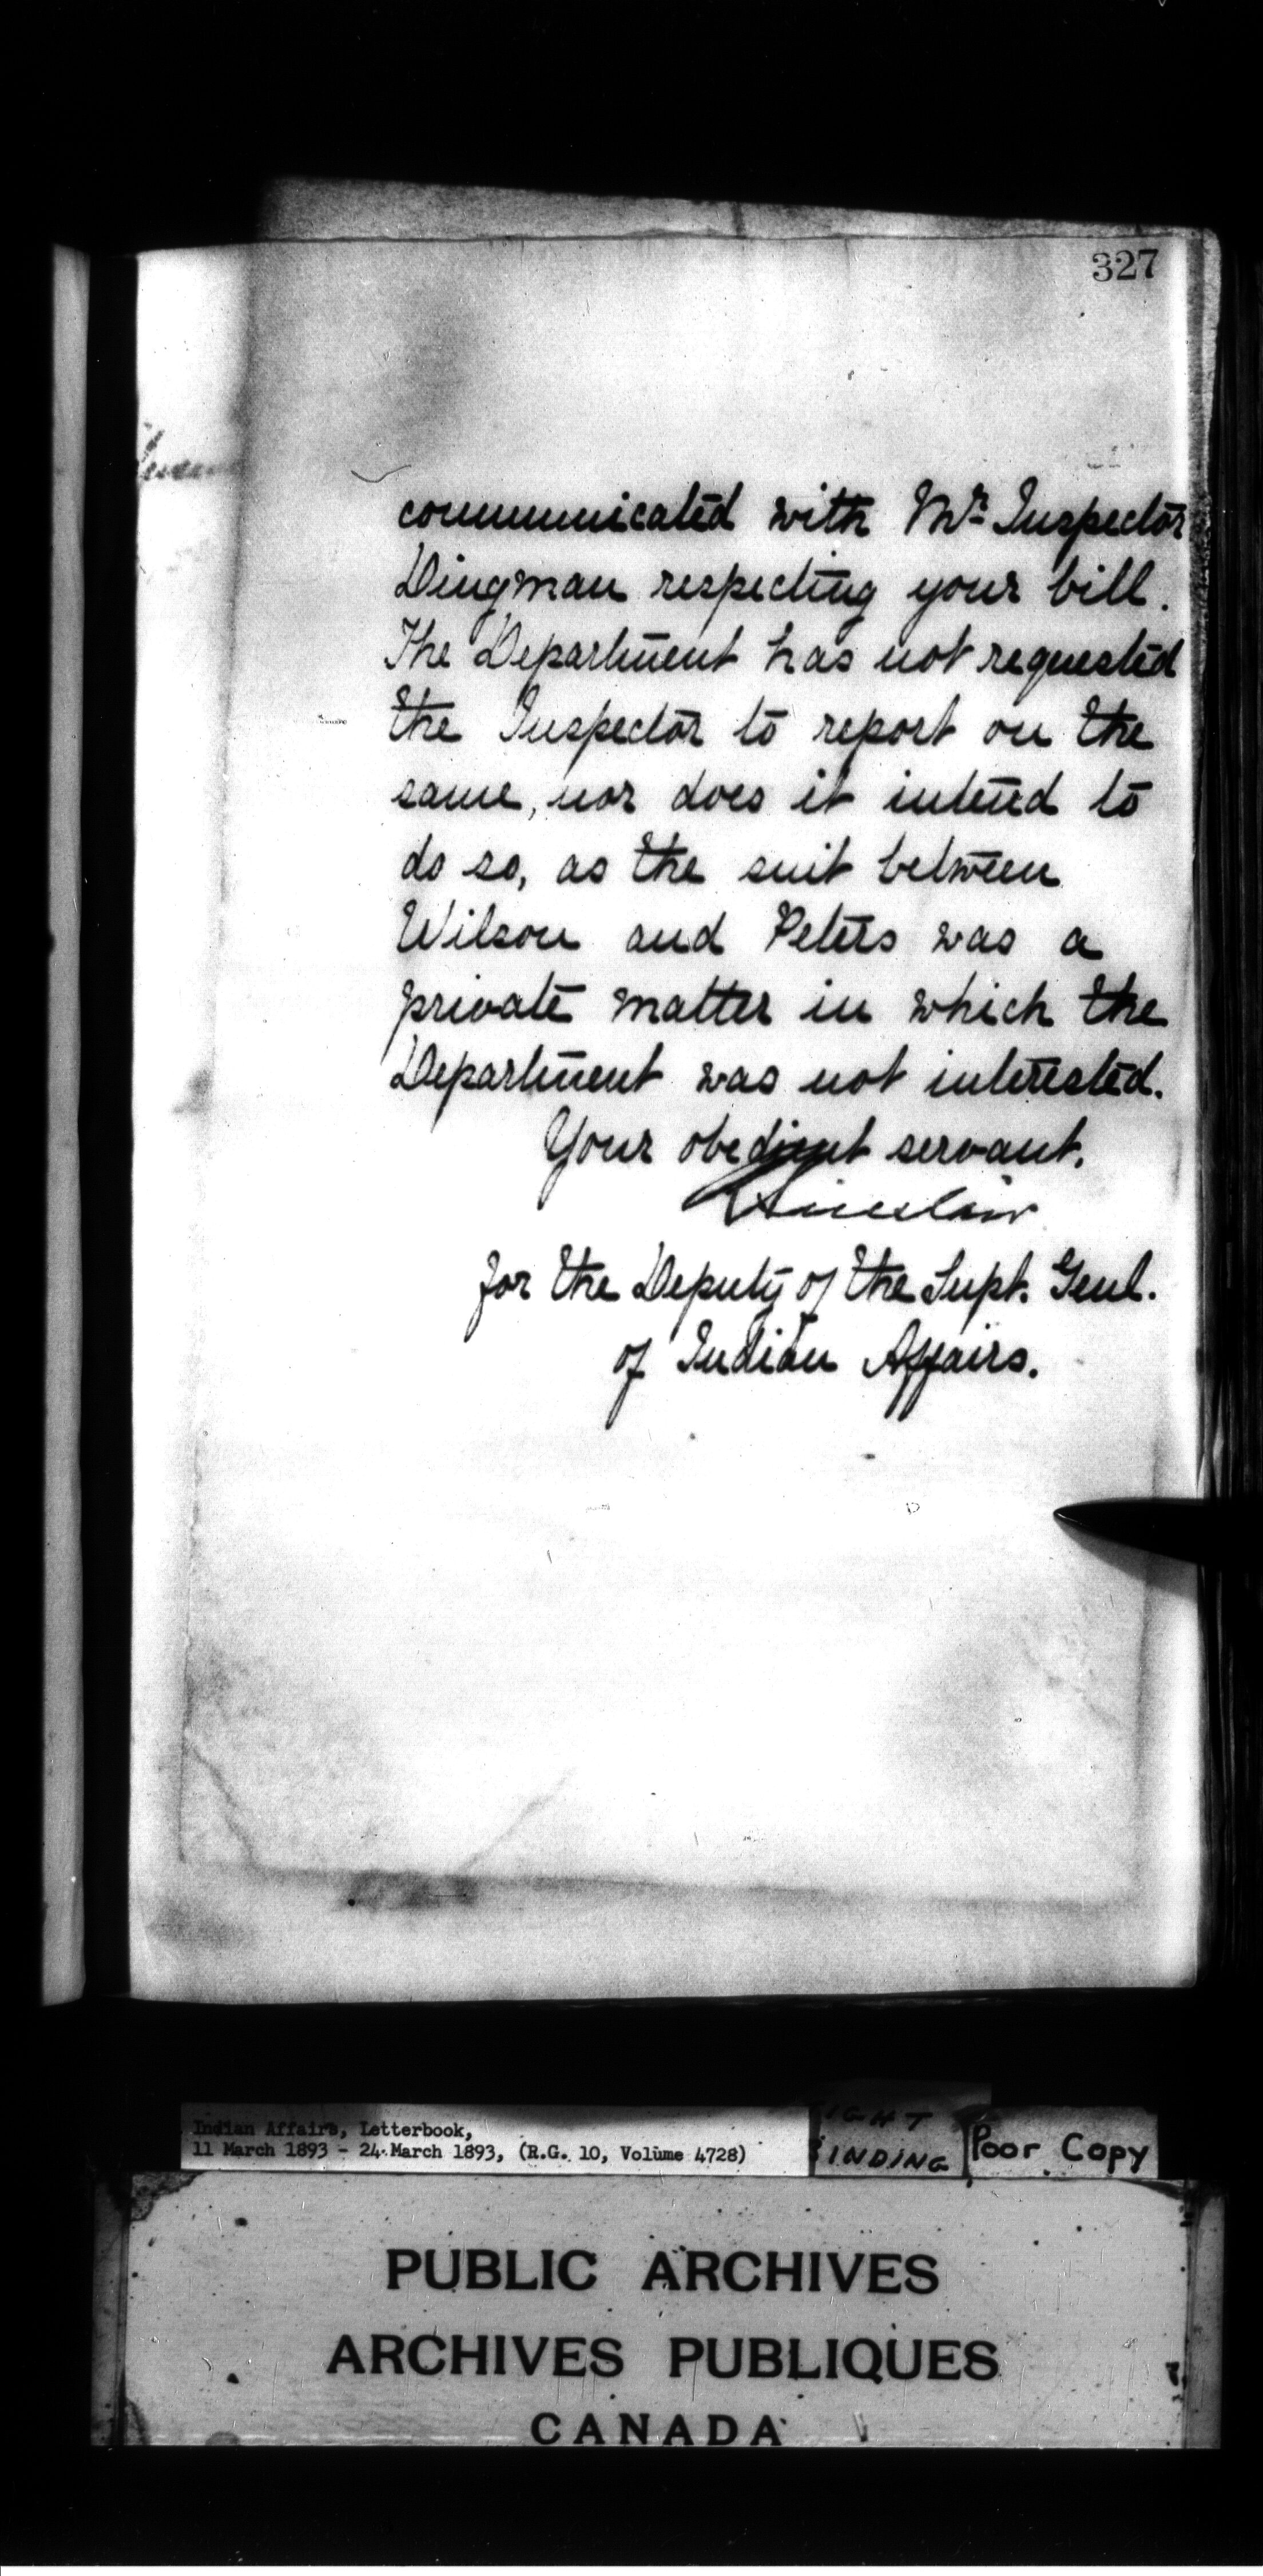 327
communicated with Mr. Inspector
Dingman respecting your bill.
The Department has not requested
the Inspector to report on the
same, nor does it intend to
do so, as the suit between
Wilson and Peters was a
private matter in which the
Department was not interested.
Your obedient servant,
Sinclair
for the Deputy of the Supt. Genl.
of Indian Affairs.
Indian Affairs, Letterbook,
11 March 1893 - 24 March 1893, (R.G. 10, Volume 4728)
IGHT
INDING
Poor Copy
PUBLIC ARCHIVES
ARCHIVES PUBLIQUES
CANADA